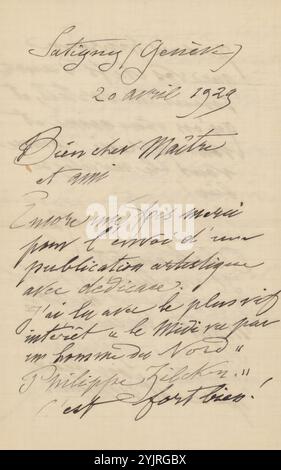 Satigny (Genève)
20 avril 1929
Bien cher Maître
et ami
Encore une fois merci
pour l'envoi d'une
publication artistique
avec dédicace.
J'ai lu avec le plus vif
intérêt „ le Midi vu par
un homme du Nord „
Philippe Zilcken. „
c'est fort bien!
alamy
Image ID: 2YJRGBX
www.alamy.com